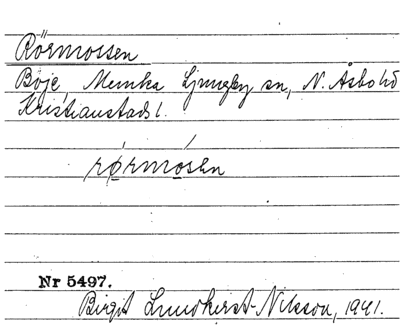 Rörmossen
Böje, Munka Ljungby sn, N. Åsbo hd
Kristianstads l.
rørmósen
Nr 5497.
Birgit Lundkvist-Nilsson, 1941.